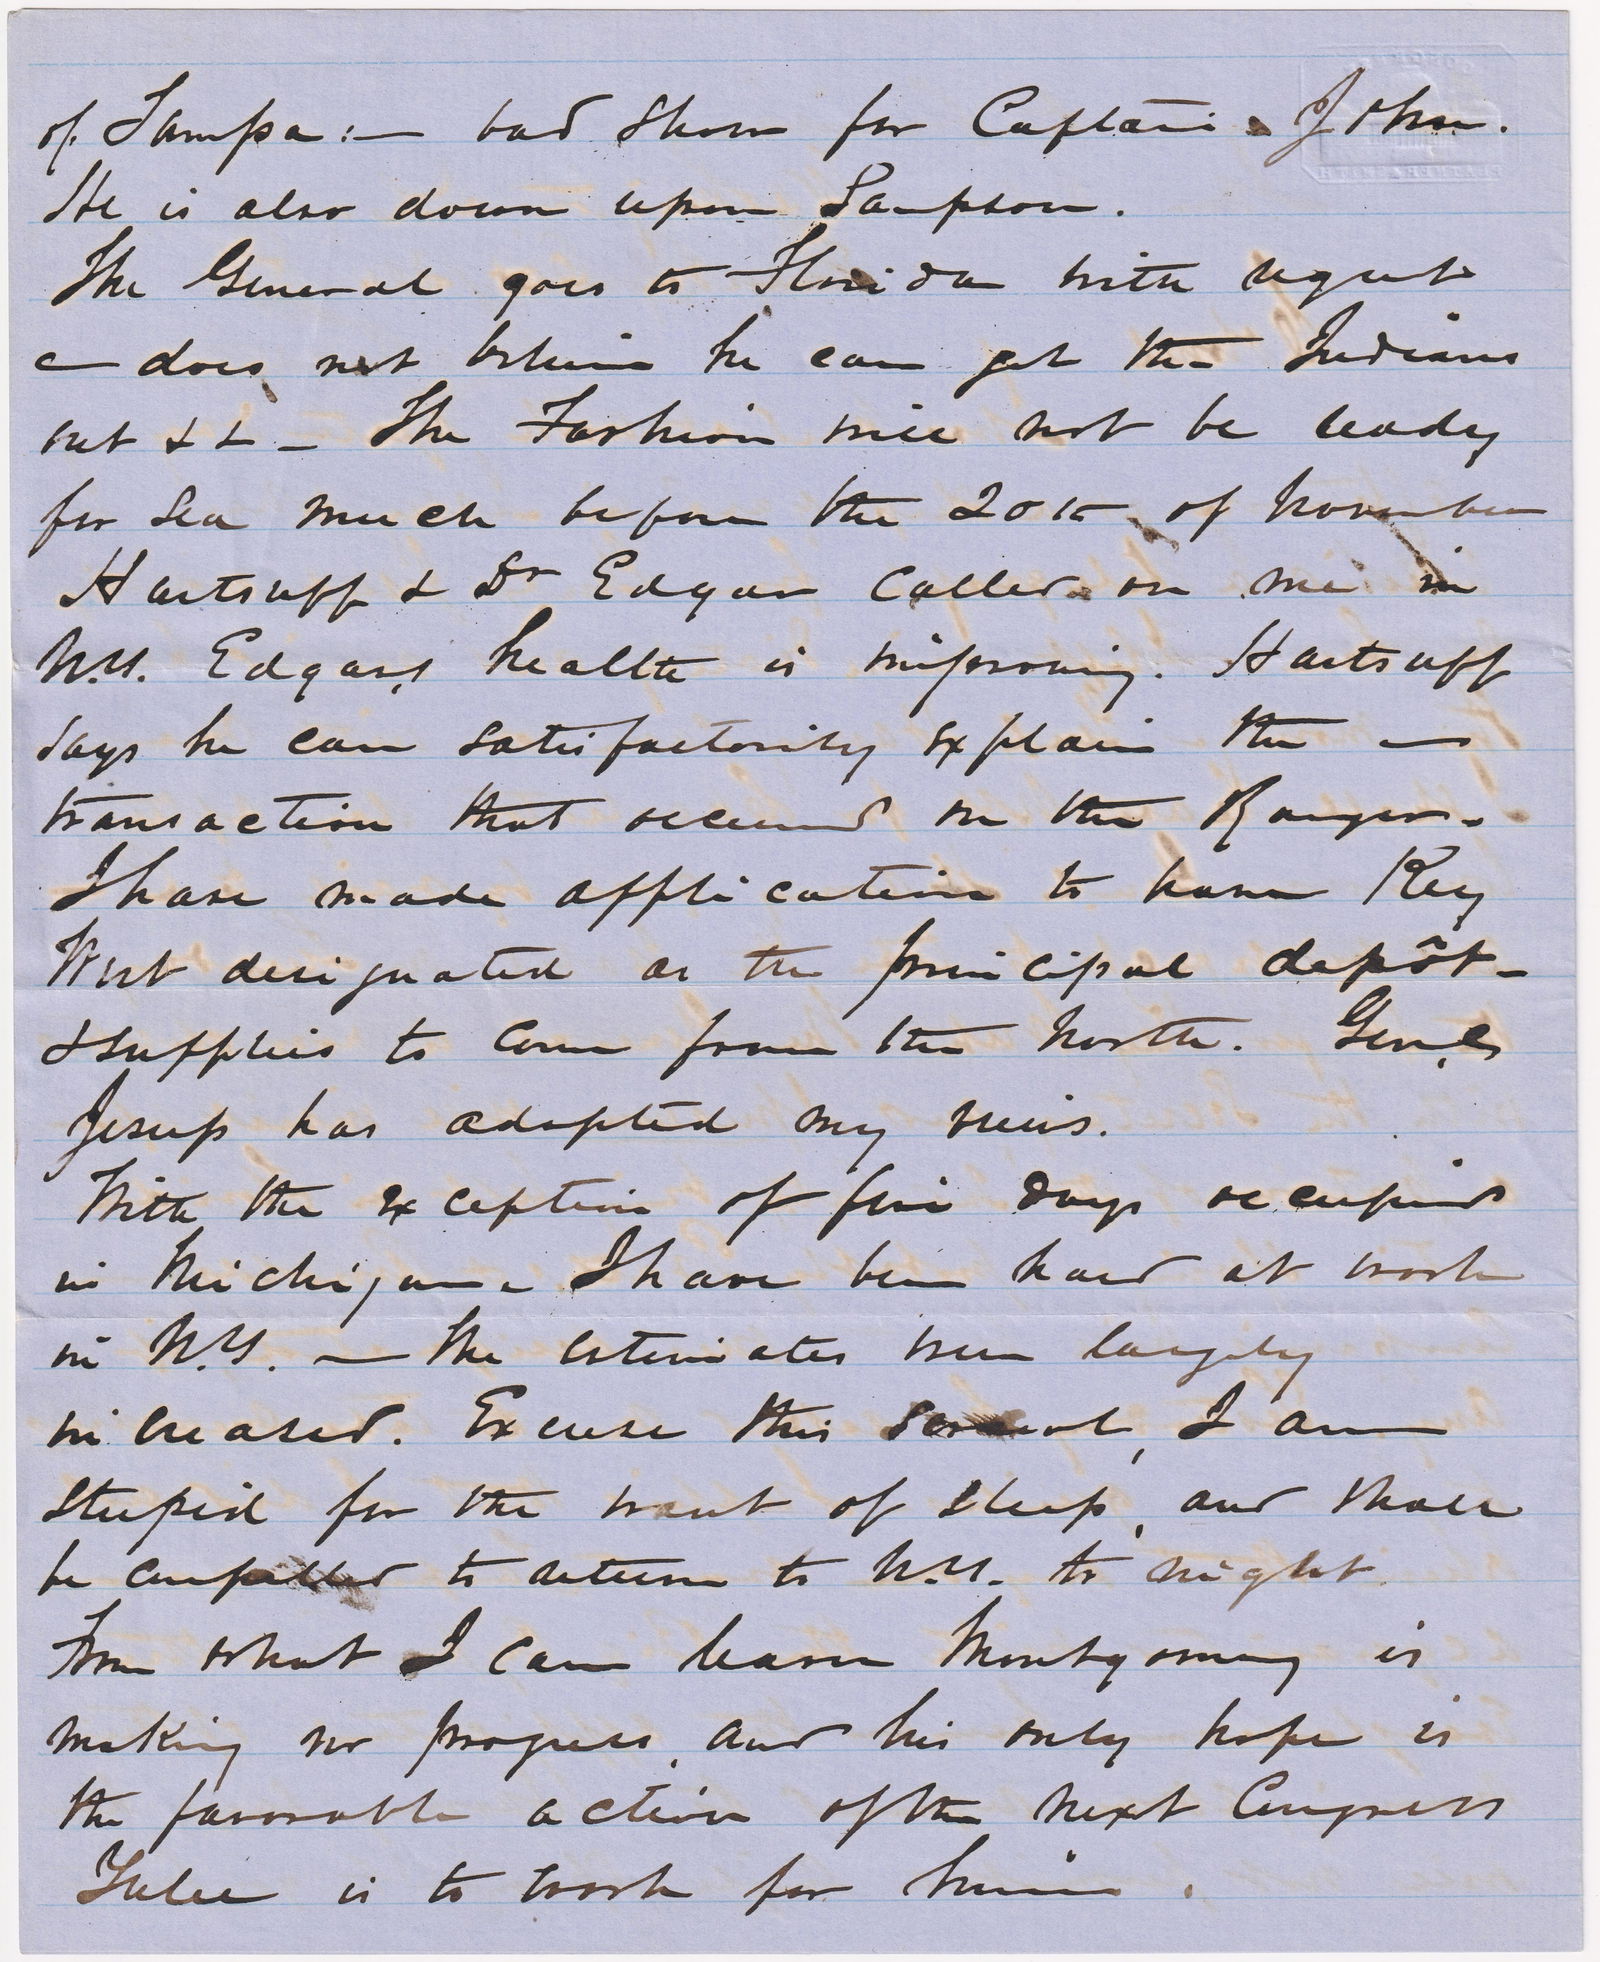 of Tampa:— bad show for Captain John.
He is also down upon Sampson.
The General goes to Florida with regret
— does not believe he can get the Indians
out & & — The Fashion will not be ready
for sea much before the 20th of November
Hartsuff & Dr Edgar called on me in
N.Y. Edgar's health is improving. Hartsuff
says he can satisfactorily explain the —
transaction that occurred on the Ranger.
I have made application to have Key
West designated as the principal depôt –
& supplies to come from the North. Genl
Jesup has adopted my views.
With the exception of five days occupied
in Michigan – I have been hard at work
in N.Y. — The estimates were largely
increased. Excuse this scrawl, I am
stupid for the want of sleep, and shall
be compelled to return to N.Y. to night.
From what I can learn Montgomery is
making no progress, and his only hope is
the favorable action of the next Congress
Yulee is to work for him.